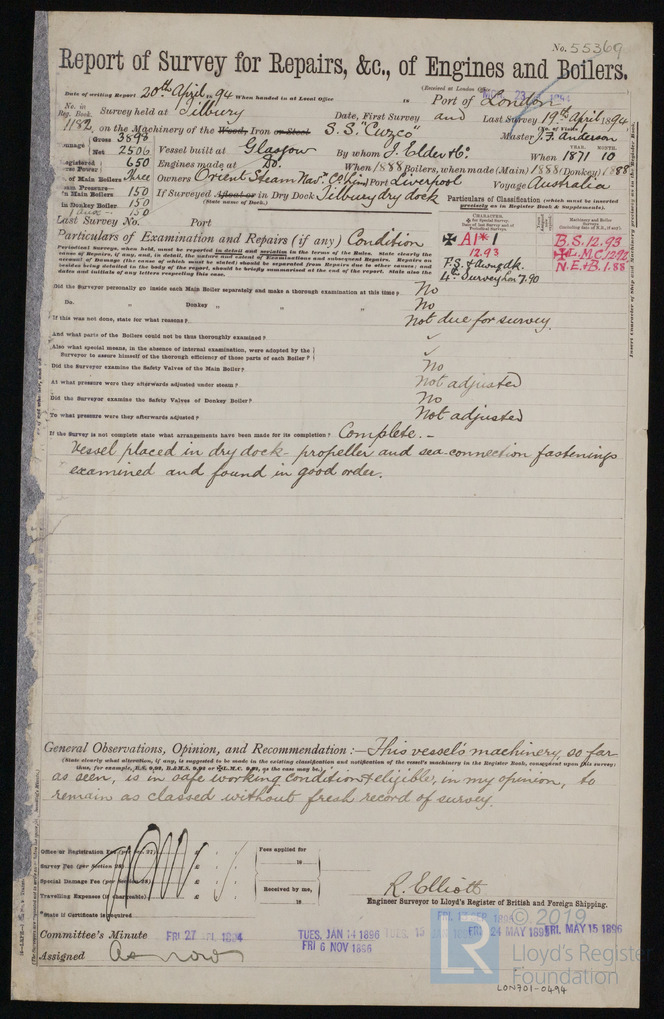 No. 55369
Report of Survey for Repairs, &c., of Engines and Boilers.
(Received at London Office
Date of writing Report 20th April 94 When handed in at Local Office in Port of London
No. in Reg. Book. Survey held at Tilbury Date, First Survey and Last Survey 19th April 1894
1182 on the Machinery of the Wood, Iron or Steel S.S. "Cuzco" Master J. F. Anderson
Gross 3898
Net 2506 Vessel built at Glasgow By whom J. Elder & Co. When 1871 10
YEAR. MONTH.
Registered Horse Power 650 Engines made at Do. When 1888 Boilers, when made (Main) 1888 (Donkey) 1888
No. of Main Boilers Three Owners Orient Steam Nav. Co. Lim Port Liverpool Voyage Australia
in Main Boilers 150 If Surveyed Afloat or in Dry Dock Tilbury dry dock
(State name of Dock.)
in Donkey Boiler 150
150
Particulars of Classification (which must be inserted precisely as in Register Book & Supplements).
Last Survey No. Port
CHARACTER.
Machinery and Boiler Surveys
Particulars of Examination and Repairs (if any) Condition
✠ A1* 1
12.93
P.S. & Awng dk.
4th Survey Lon 7.90
B.S. 12.93
✠ L.M.C. 12.92
N.E. & B. 1.88
Periodical Surveys, when held, must be reported in detail and seriatim in the terms of the Rules. State clearly the cause of Repairs, if any, and, in detail, the nature and extent of Examinations and consequent Repairs. Repairs on account of Damage (the cause of which must be stated) should be separated from Repairs due to other causes; and besides being detailed in the body of the report, should be briefly summarised at the end of the report. State also the dates and initials of any letters respecting this case.
Did the Surveyor personally go inside each Main Boiler separately and make a thorough examination at this time? No
Do. " Donkey " " " No
If this was not done, state for what reasons? Not due for survey.
And what parts of the Boilers could not be thus thoroughly examined? ✓
Also what special means, in the absence of internal examination, were adopted by the
Surveyor to assure himself of the thorough efficiency of those parts of each Boiler? ✓
Did the Surveyor examine the Safety Valves of the Main Boiler? No
At what pressure were they afterwards adjusted under steam? Not adjusted
Did the Surveyor examine the Safety Valves of Donkey Boiler? No
To what pressure were they afterwards adjusted? Not adjusted
If the Survey is not complete state what arrangements have been made for its completion? Complete.-
Vessel placed in dry dock - propeller and sea-connection fastenings
examined and found in good order.
General Observations, Opinion, and Recommendation :— This vessel's machinery, so far
(State clearly what alteration, if any, is suggested to be made in the existing classification and notification of the vessel's machinery in the Register Book, consequent upon this survey:
as seen, is in safe working condition & eligible, in my opinion, to
remain as classed without fresh record of survey.
Office or Registration Fee £ Fees applied for
Survey Fee (per Section 28) £ 18
Special Damage Fee (per Section 28) £ Received by me,
Travelling Expenses (if chargeable) £ 18
*State if Certificate is required
R. Elliott
Engineer Surveyor to Lloyd's Register of British and Foreign Shipping.
Committee's Minute FRI 27 APL 1894
TUES. JAN 14 1896
FRI 24 MAY 1895
FRI. MAY 15 1896
FRI 6 NOV 1896
Assigned As now
© 2019
LR
Lloyd's Register
Foundation
LON701-0494